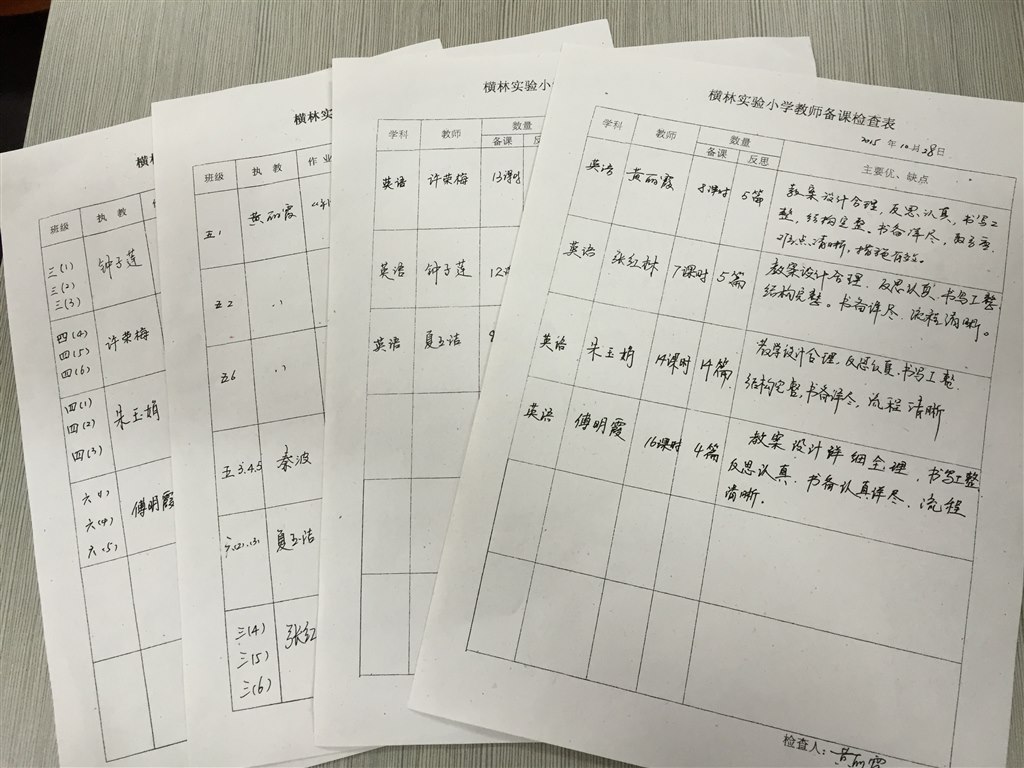 横林
班级 执教
三(1)
三(2)
三(3)
钟子莲
四(4)
四(5)
四(6)
许荣梅
四(1)
四(2)
四(3)
朱玉娟
六(4)
六(5)
傅明霞
横林实
班级 执教 作业
五1 黄丽霞
五2 〃
五6 〃
五3.4.5 秦波
夏玉洁
三(4)
三(5)
三(6)
张红
横林实验小
学科 教师 数量
备课
英语 许荣梅 13课时
英语 钟子莲 12
英语 夏玉洁
横林实验小学教师备课检查表
2015年10月28日
学科 教师 数量 主要优、缺点
备课 反思
英语 黄丽霞 8课时 5篇
教案设计合理,反思认真,书写工
整,结构完整、书备详尽,
清晰,措施有效。
英语 张红林 7课时 5篇
教案设计合理、反思认真、书写工整
结构完整。书备详尽、流程清晰。
英语 朱玉娟 14课时 14篇
教学设计合理,反思认真,书写工整.
结构完整,书备详尽,流程清晰
英语 傅明霞 16课时 4篇
教案设计详细全理,书写工整
反思认真、书备认真详尽、流程
清晰.
检查人:黄丽霞